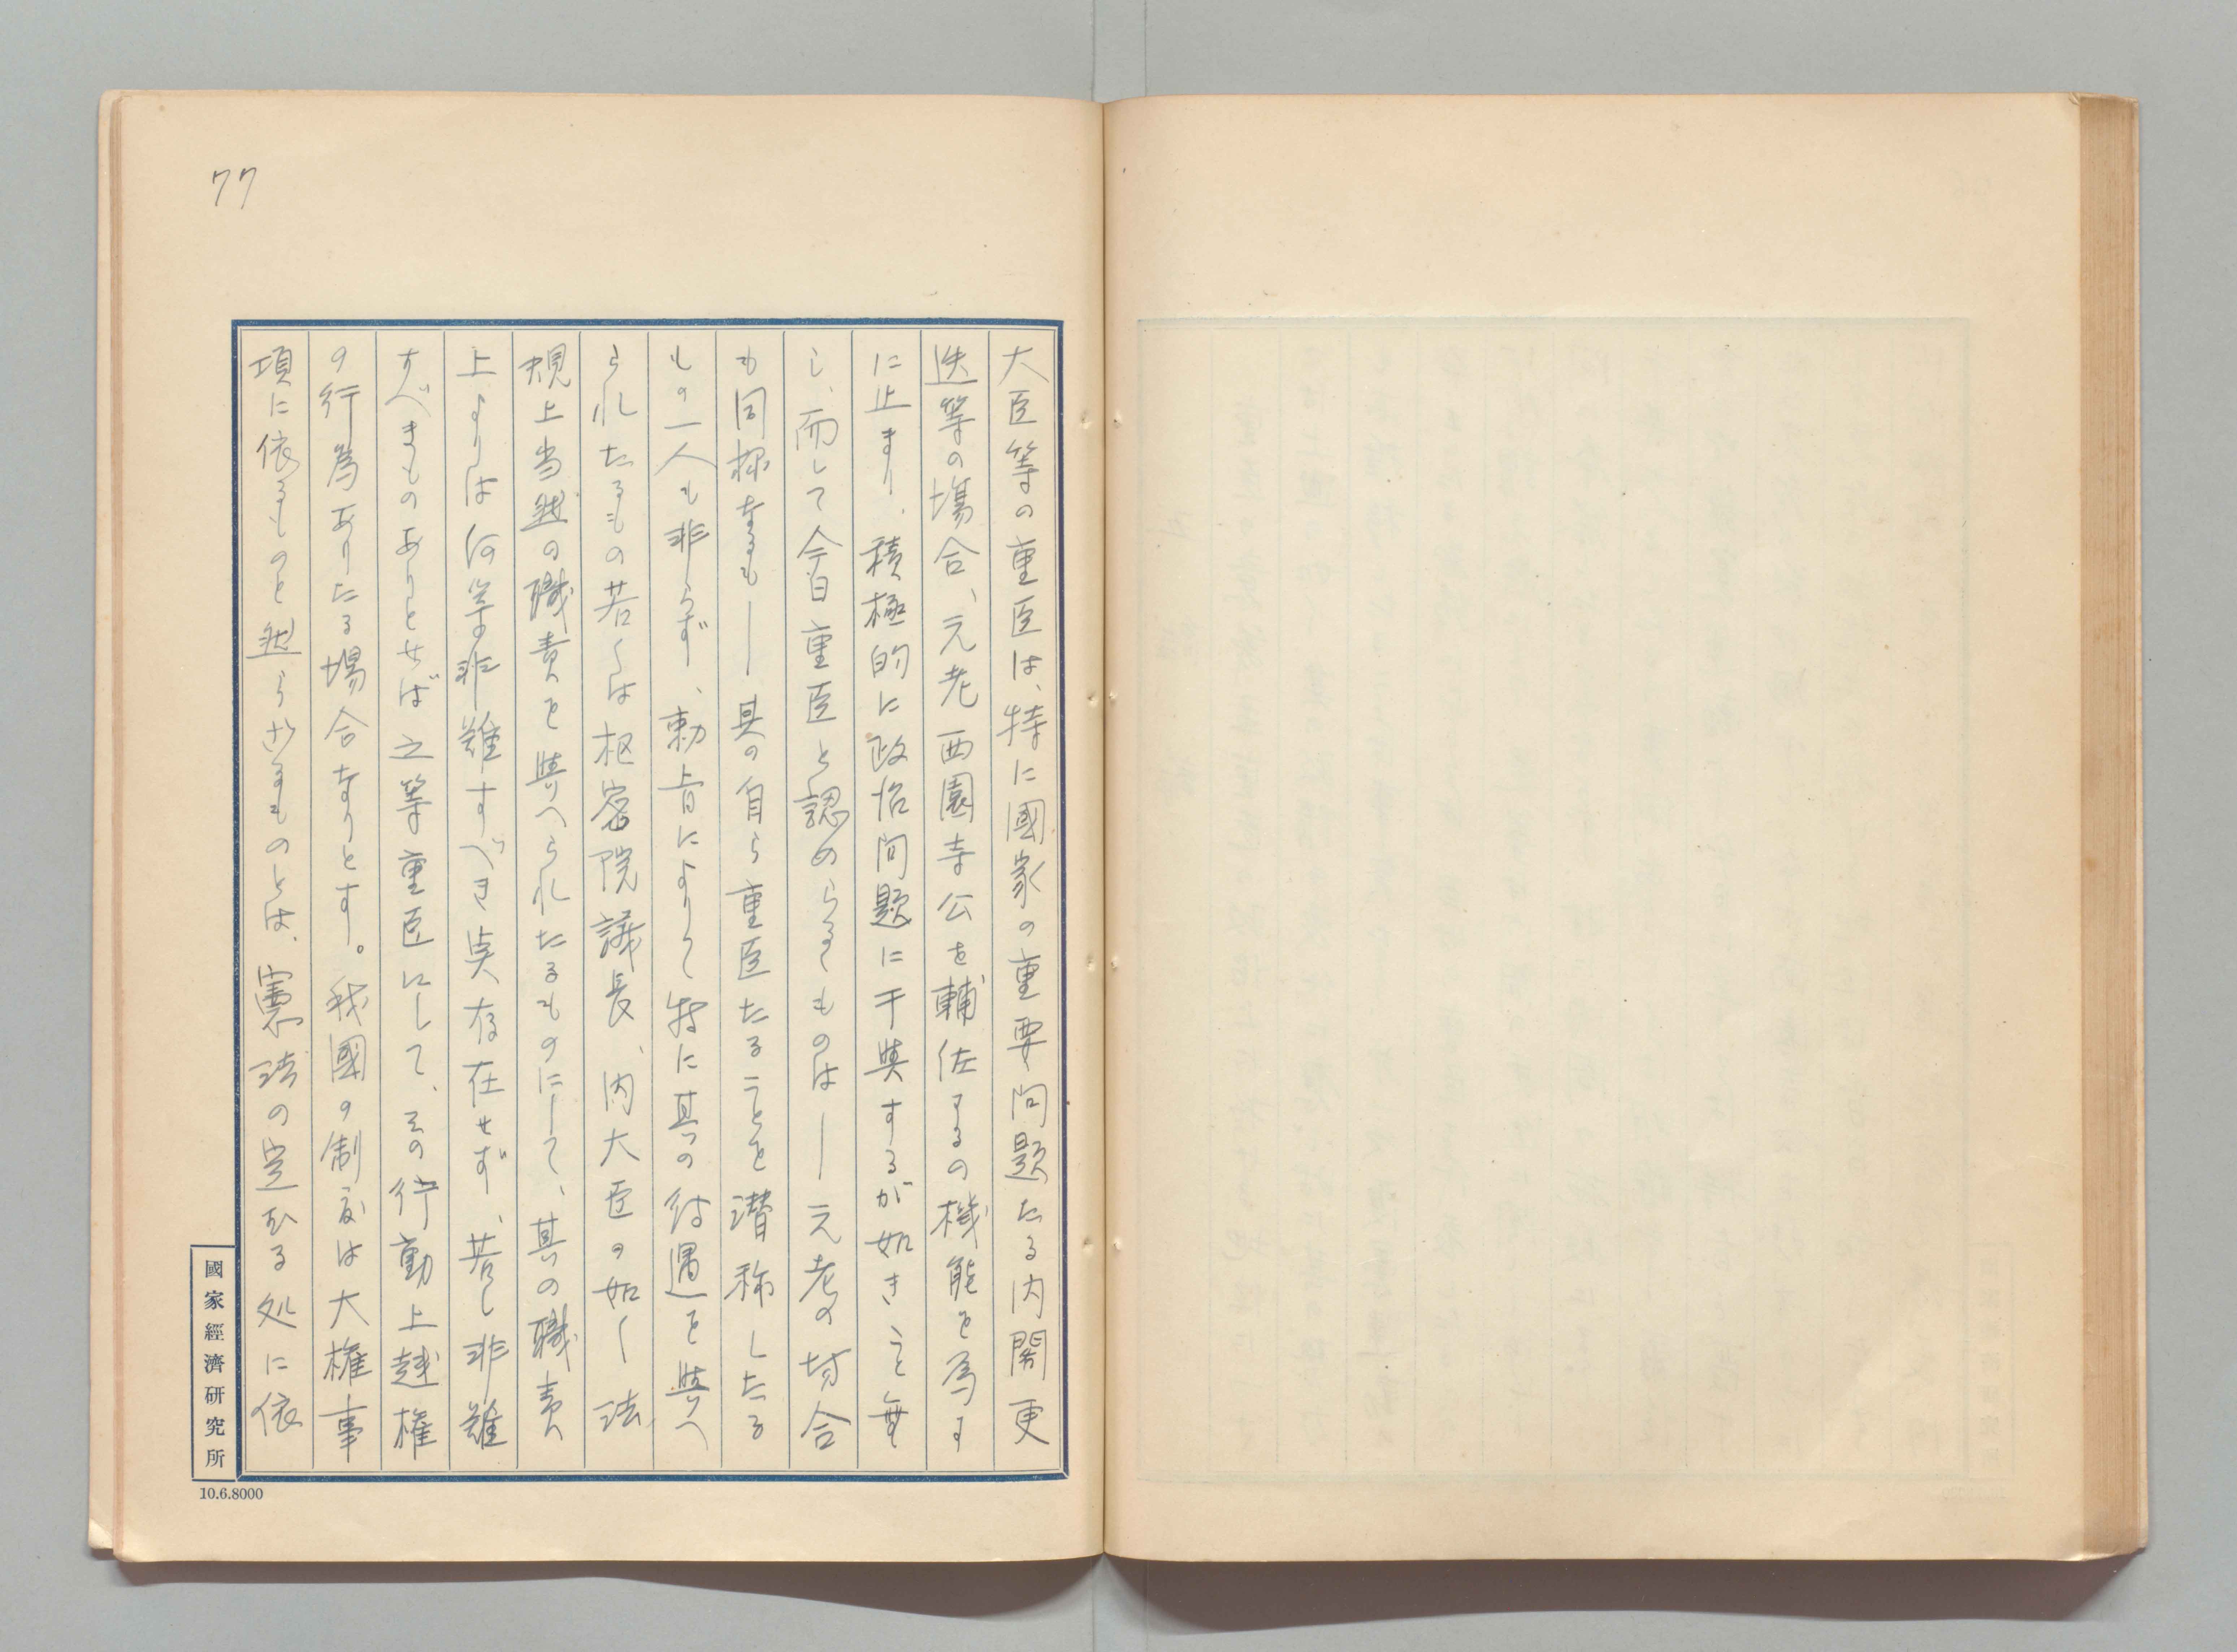 77
大臣等の重臣は、特に國家の重要问題たる内閣更
迭等の場合、元老西園寺公を輔佐するの機能を為す
に止まり、積極的に政治问題に干與するが如きこと無
し、而して今日重臣と認めらるゝものは―元老の場合
も同様なるも―其の自ら重臣たることを潜称したる
もの一人も非らず、勅旨によりて特に其の待遇を與へ
られたるもの若くは枢密院議長、内大臣の如く法
規上当然の職責を與へられたるものにして、其の職責
上よりは何等非難すべき点存在せず、若し非難
すべきものありとせば之等重臣にして、その行動上越権
の行為ありたる場合なりとす。我國の制度は大権事
項に依るものと然らざるものとは、憲法の定むる処に依
國家經濟研究所
10.6.8000